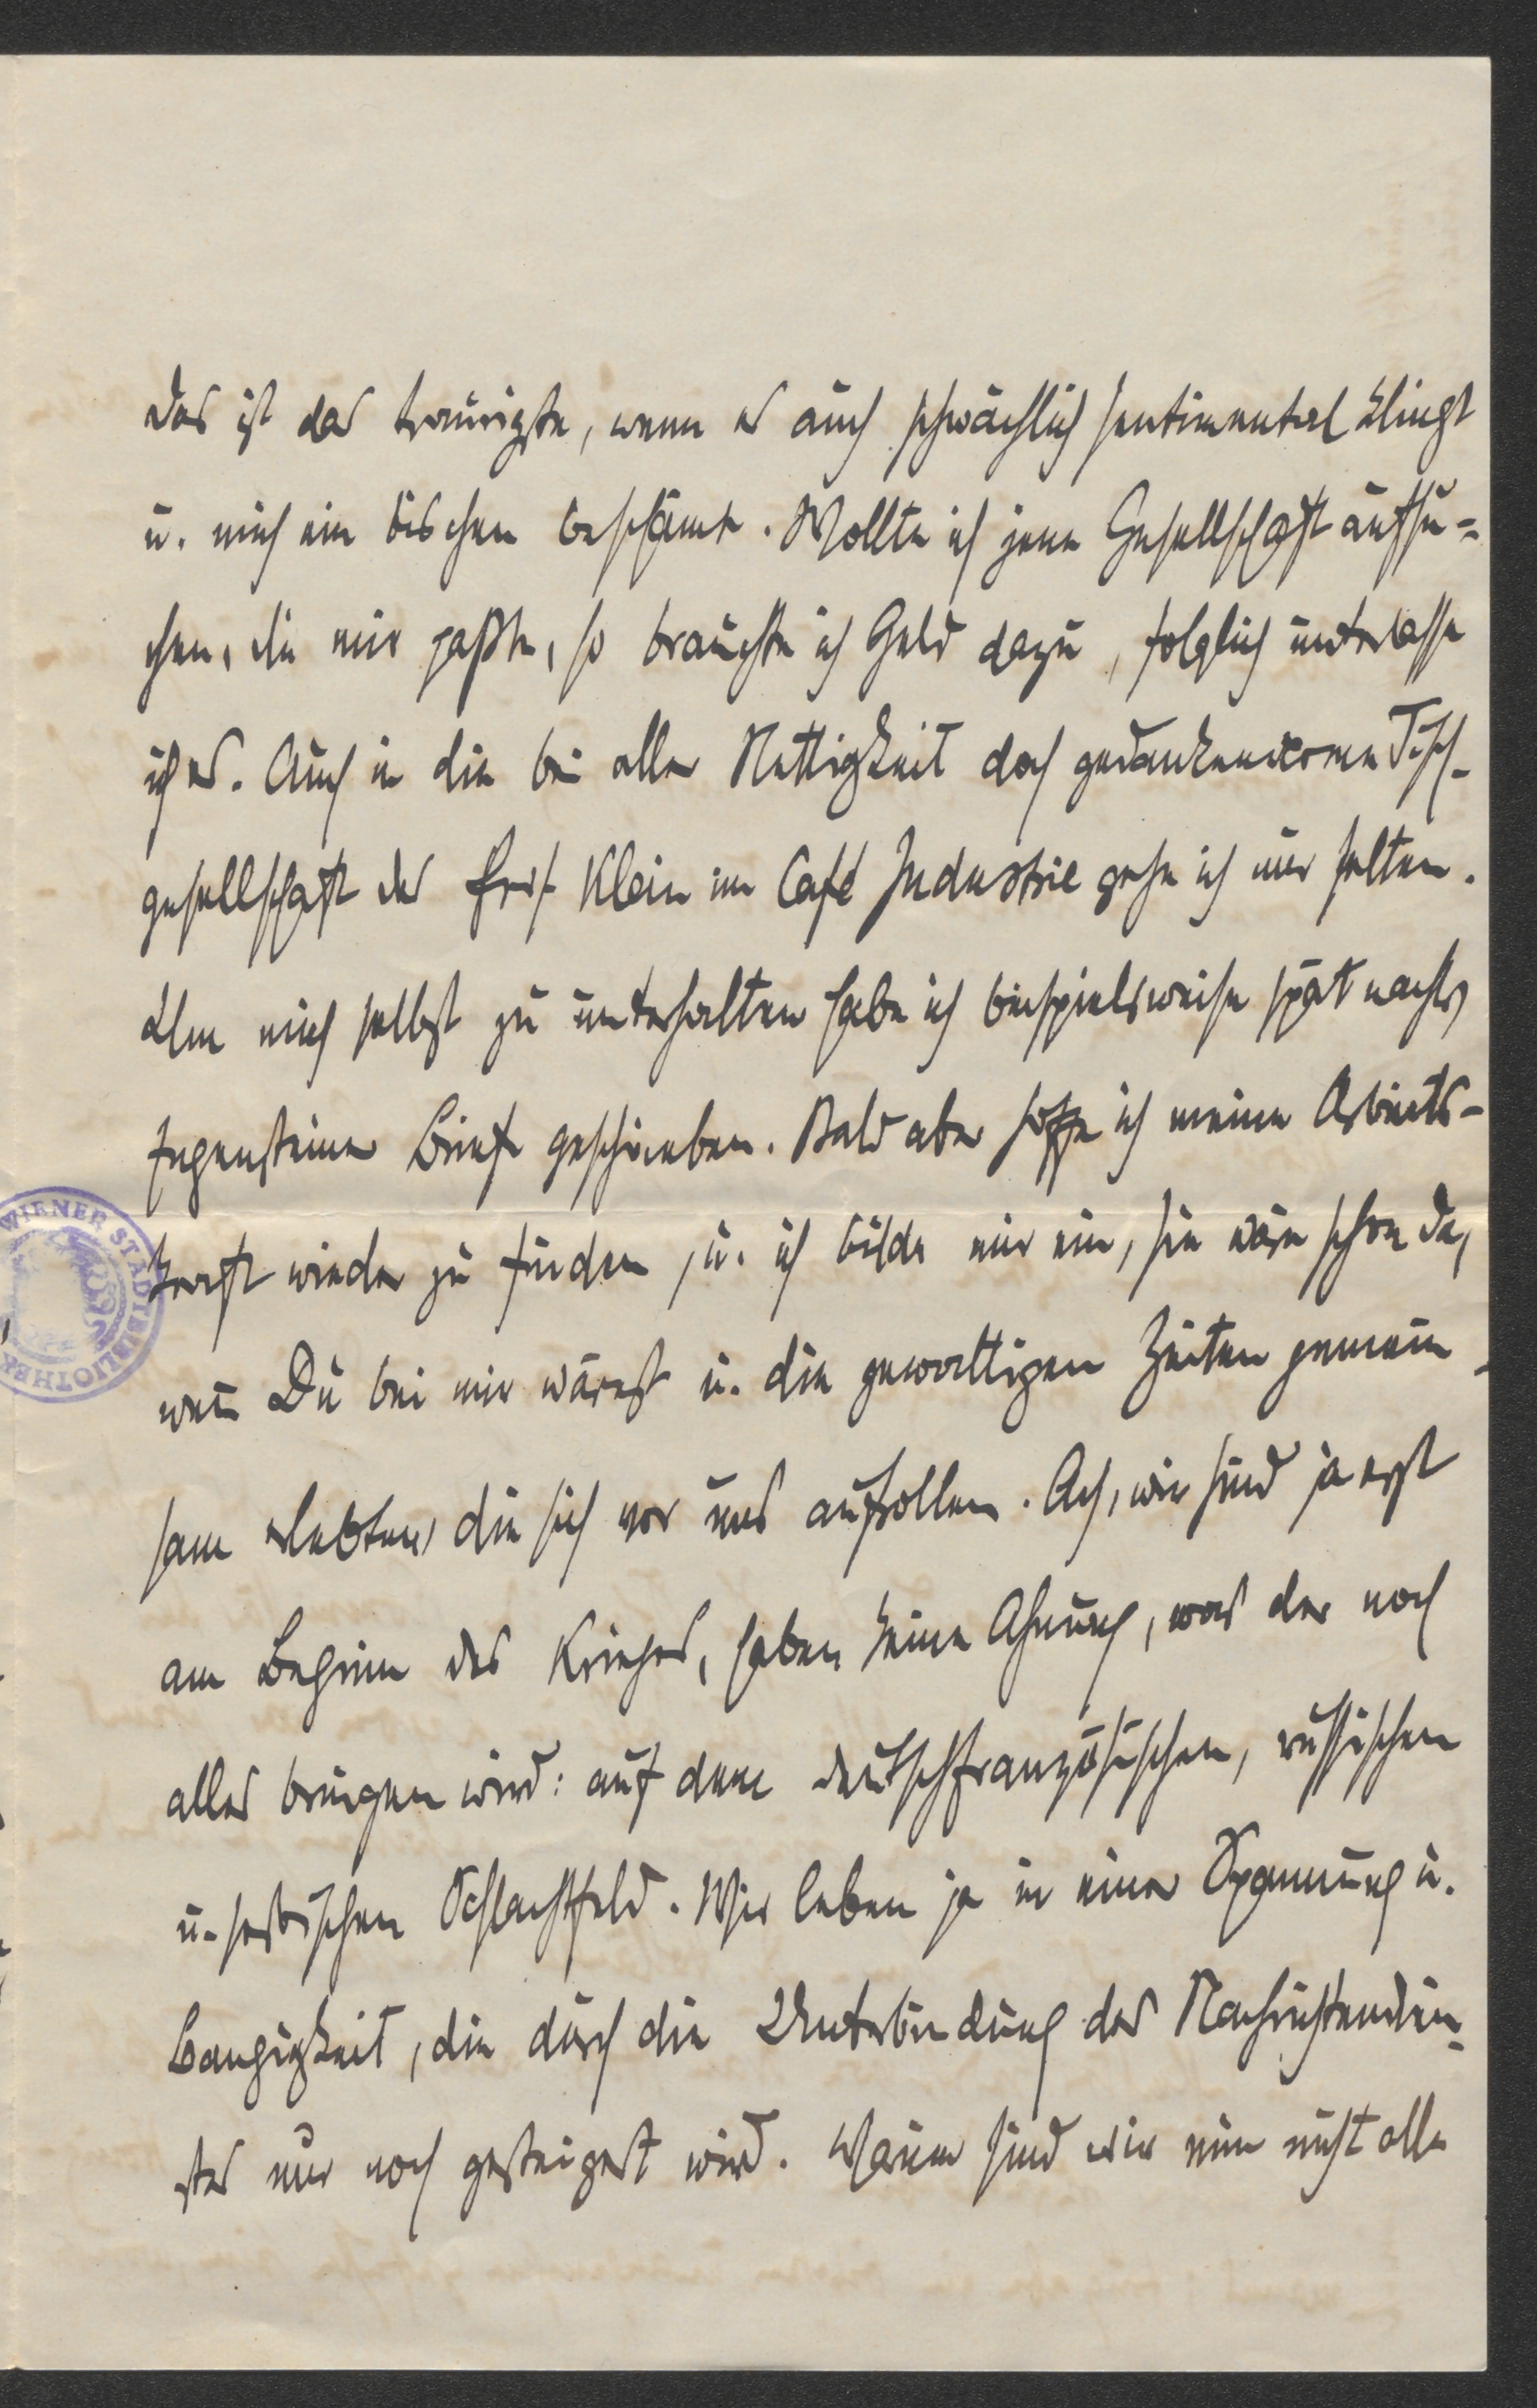 Das ist das traurigste, wenn es auch schwächlich sentimental klingt
u. mich ein bischen beschämt. Wollte ich jene Gesellschaft aufsu-
chen, die mir paßte, so brauchte ich Geld dazu, folglich unterlasse
ich es. Auch in die bei aller Nettigkeit doch gedankenarme Tisch-
gesellschaft des Prof. Klein im Café Industrie gehe ich nur selten.
Um mich selbst zu unterhalten habe ich beispielsweise spät nachts
Jugensteiner Briefe geschrieben. Bald aber hoffe ich meine Arbeits-
kraft wieder zu finden, u. ich bilde mir ein, sie wäre schon da,
wen̄ Du bei mir wärest u. die gewaltigen Zeiten gemein-
sam erlebten, die sich vor uns aufrollen. Ach, wir sind ja erst
am Beginn des Krieges, haben keine Ahnung, was der noch
alles bringen wird: auf dem deutschfranzösischen, russischen
u. serbischen Schlachtfeld. Wir leben ja in einer Spannung u.
Bangigkeit, die durch die Unterbindung des Nachrichtendien-
stes nur noch gesteigert wird. Warum sind wir nun nicht alle
WIENER STADTBIBLIOTHEK